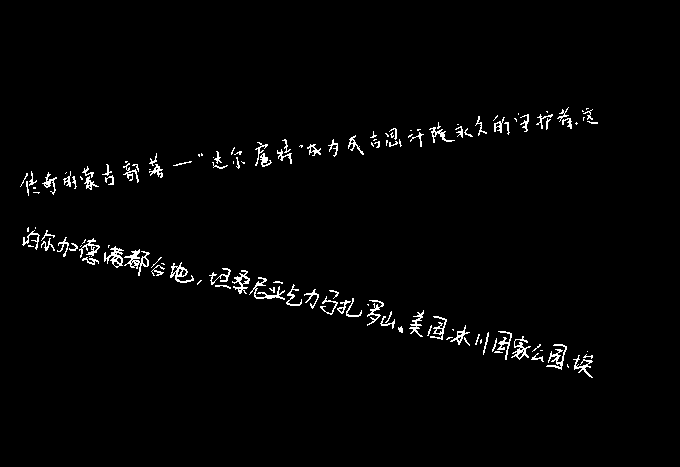 传奇的蒙古部落一“达尔扈特”成为成吉思汗陵永久的守护者.这
泊尔加德满都谷地,坦桑尼亚乞力马扎罗山。美国冰川国家公园、埃